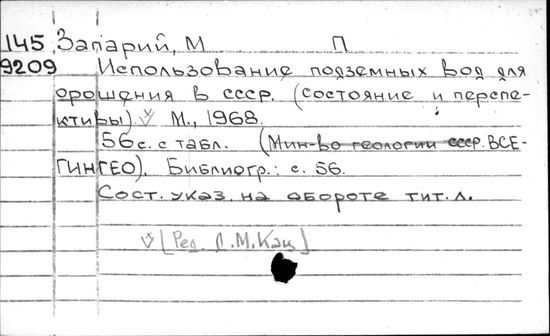 145 Запарий, М П
9209 Использование подземных вод для
орошения в СССР. (состояние и перспе-
ктивы). М., 1968.
56 с. с табл. (Мин-во геологии СССР. ВСЕ-
ГИНГЕО). Библиогр.: с. 56.
Сост. указ. на обороте тит. л.
[Ред. Д. М. Кац]